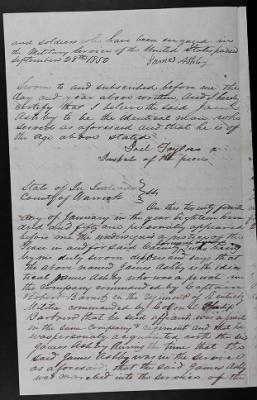 and soldiers who have been engaged in
the Military Service of the United States passed
September 28th 1850
James Ashby
Sworn to and subscribed before me the
day and year above written, And I hereby
certify that I believe the said James
Ashby to be the identical man who
served as aforesaid and that he is of
the age above stated
Taylor
Justice of the peace
State of
County of Warrick
On this twenty fourth
day of January in the year Eighteen hun
dred and fifty one personally appeared
before me the undersigned a Justice of the
Peace in and for said County
by me duly sworn deposes and says that
the above named James Ashby is the iden
tical James Ashby who was a private in
the Company commanded by Captain
Robert in the regiment of
Militia commanded by
that he said affiant was a private
in the same Company & regiment and that he
was personally acquainted with the said
James Ashby during the time that the
said James Ashby was in the service
as aforesaid, that the said James Ashby
was mustered into the services of the